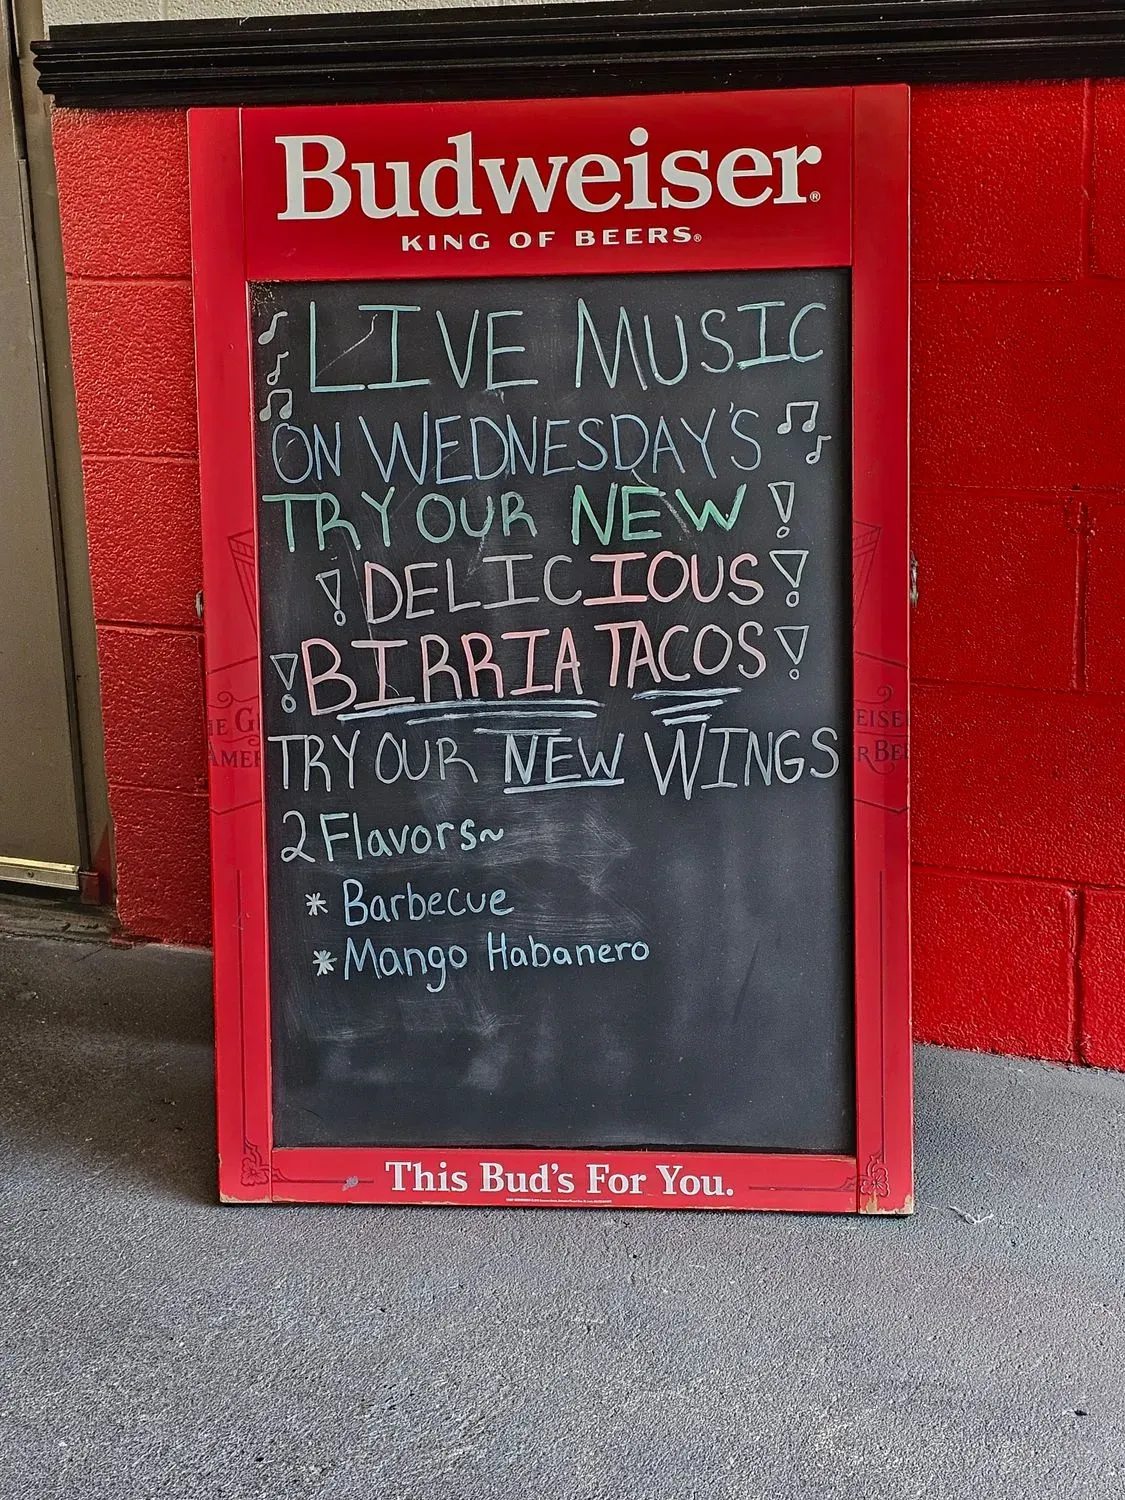 Budweiser®
KING OF BEERS®
LIVE MUSIC
ON WEDNESDAY'S
TRY OUR NEW !
! DELICIOUS !
! BIRRIA TACOS !
TRY OUR NEW WINGS
2 Flavors~
* Barbecue
* Mango Habanero
This Bud's For You.